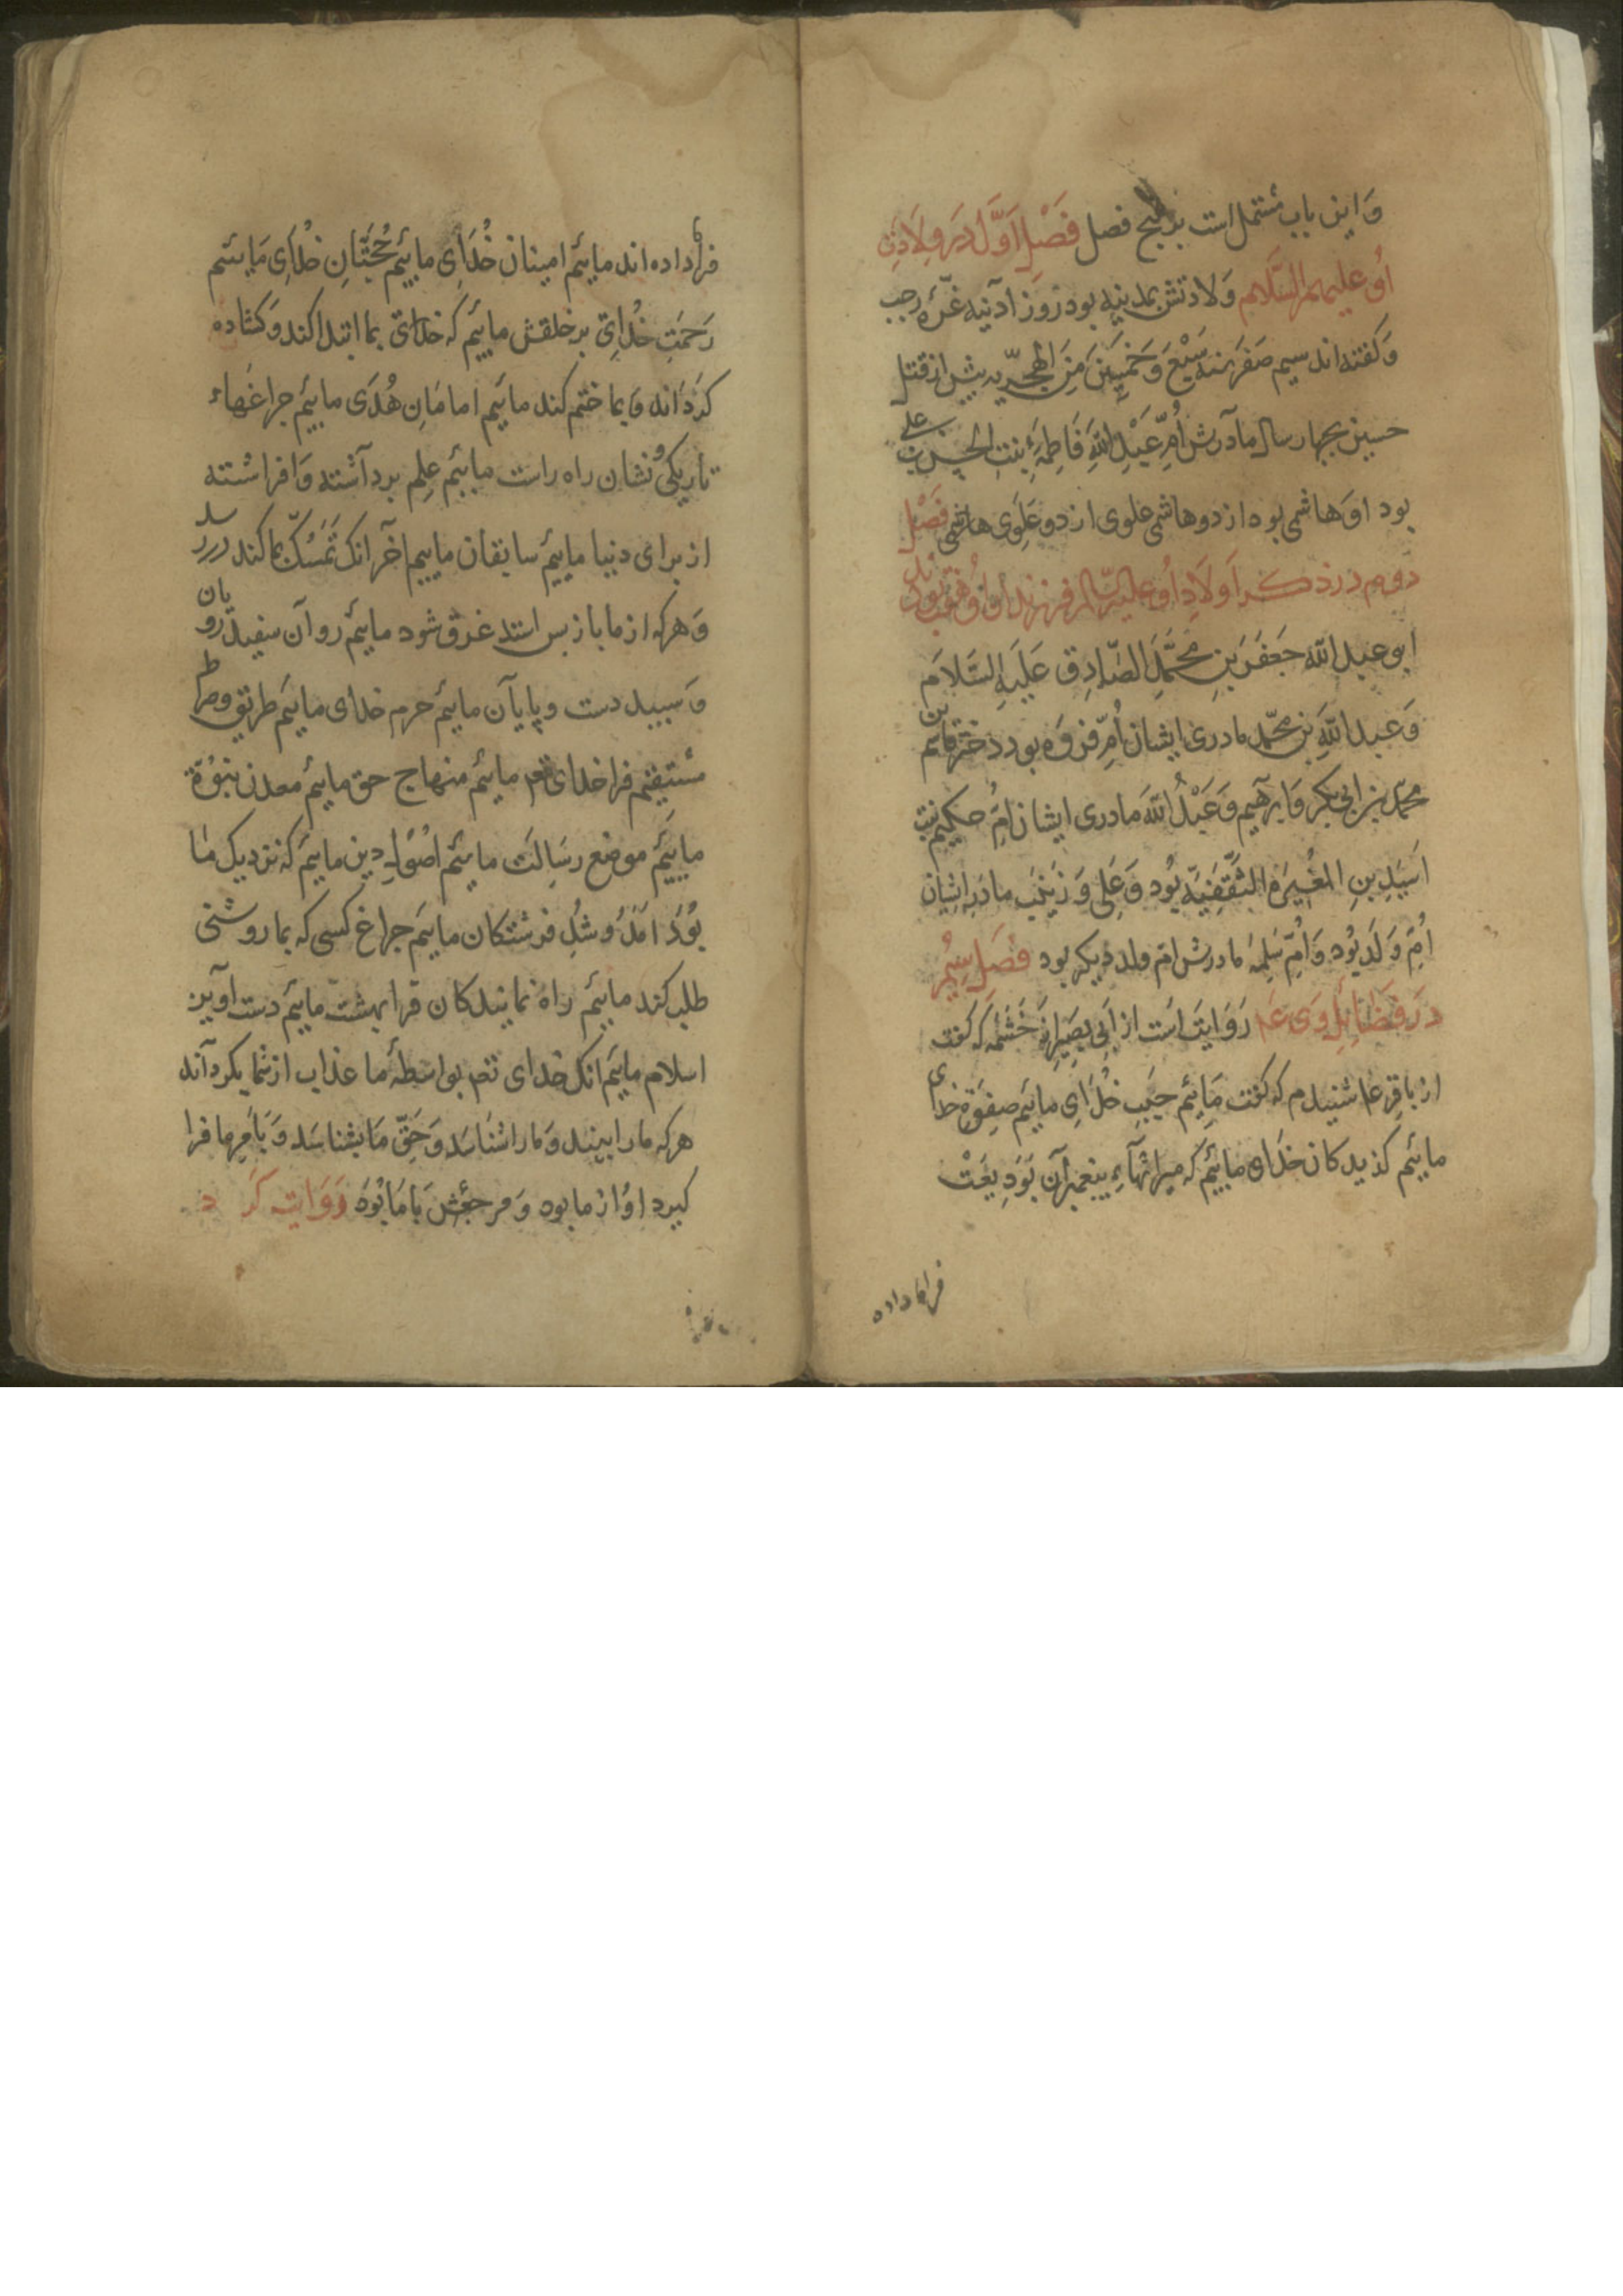 وَ این باب مشتمل است بر پنج فصل فَصْلِ اَوَّل دَر وِلَادَتِ
اُو علیهم السَّلام وَلادتش بمدینه بود روز آدنیه غُرّهٔ رجب
وَ کفته اند سیم صَفَر سنه سَبْعَ وَ خَمْسِینَ مِنَ الهجریه پیش از قتل
حسین بچهار سال مادرش اُمِّ عَبْدِ اللّٰهِ فَاطِمَهٔ بنتِ الحسن بن علی
بود اوَ هاشمی بود از دو هاشمی علوی از دو عَلَوِی هاشمی فَصْلِ
دوم در ذکر اَولَادِ اُو علیه السّلام فرزندان اُو هفت بودند
ابو عبد اللّٰه جَعفَر بنِ مُحَمَّدِ الصَّادِق عَلَیهِ السَّلَام
وَ عبد اللّٰهِ بن محمّد مادری ایشان اُمِّ فَروَه بود دختر قاسم بن
محمّد بن ابی بکر وَ ابرهیم وَ عَبْدُ اللّٰه مادری ایشان اُمِّ حکیم بنت
اَسَیدِ بنِ المُغَیرَهٔ الثَّقَفِیَّه بُود وَ عَلِی وَ زَینَب مادَر ایشان
اُمِّ وَلَد بُود وَ اُمِّ سَلِمَه مادرش ام ولد دیکر بود فَصْلِ سِیُم
دَر فَضَائِلِ وَی عَم رَوَایَت اَست از اَبِی بصِیر از خَثْمَه که کفت
از باقِر ع شنیدم که کفت مَایِیم جَنبِ خُدَایِ ماییم صِفوَةِ خدای
ماییم کذیدکان خدای ماییم که میراثهآءِ پیغمبران بَوَدِیعَتْ
فرا ما داده
فرا ما داده اند ماییم امینان خُدَایِ ماییم حُجَّتَانِ خدَایِ مَاییم
رَحمَتِ خُدایِ بر خلقش ماییم که خدای بما ابتدا کند وَ کشاده
کردَانه وَ بما ختم کند ماییم امامَانِ هُدَی ماییم جراغهاءِ
تاریکی وُ نشان راه راست ماییم علم برداشته وَ افراشته
از برای دنیا ماییم سابقان ماییم اخر آنک تَمَسُّک بما کند در رسد
وَ هر که از ما باز پس استد غرق شود ماییم روآن سفید رویان
وَ سپید دست و پایآن ماییم حرم خدای ماییم طریق وصراط
مُستَقِیم فرا خدای تعم ماییم منهاج حق ماییم معدن نبُوّة
ماییم موضع رسَالَت ماییم اصُولِ دین ماییم که نزدیک ما
بُوَد امَدُ وُ شُدِ فرشتکان ماییم جراغ کسی که بما روشنی
طلب کند ماییم راه نمایندکان فرا بهشت ماییم دست آویز
اسلام ماییم آنک خدای تعم بواسطهٔ ما عذاب از شما بکردآند
هر که ما را بیند وَ ما را شناسَد وَ حَقِّ ما بشناسَد وَ بَامرِ ما فرا
کیرد اوُ از ما بود وَ مرجعش بَا مَا بُوَد رَوَایته کَرد